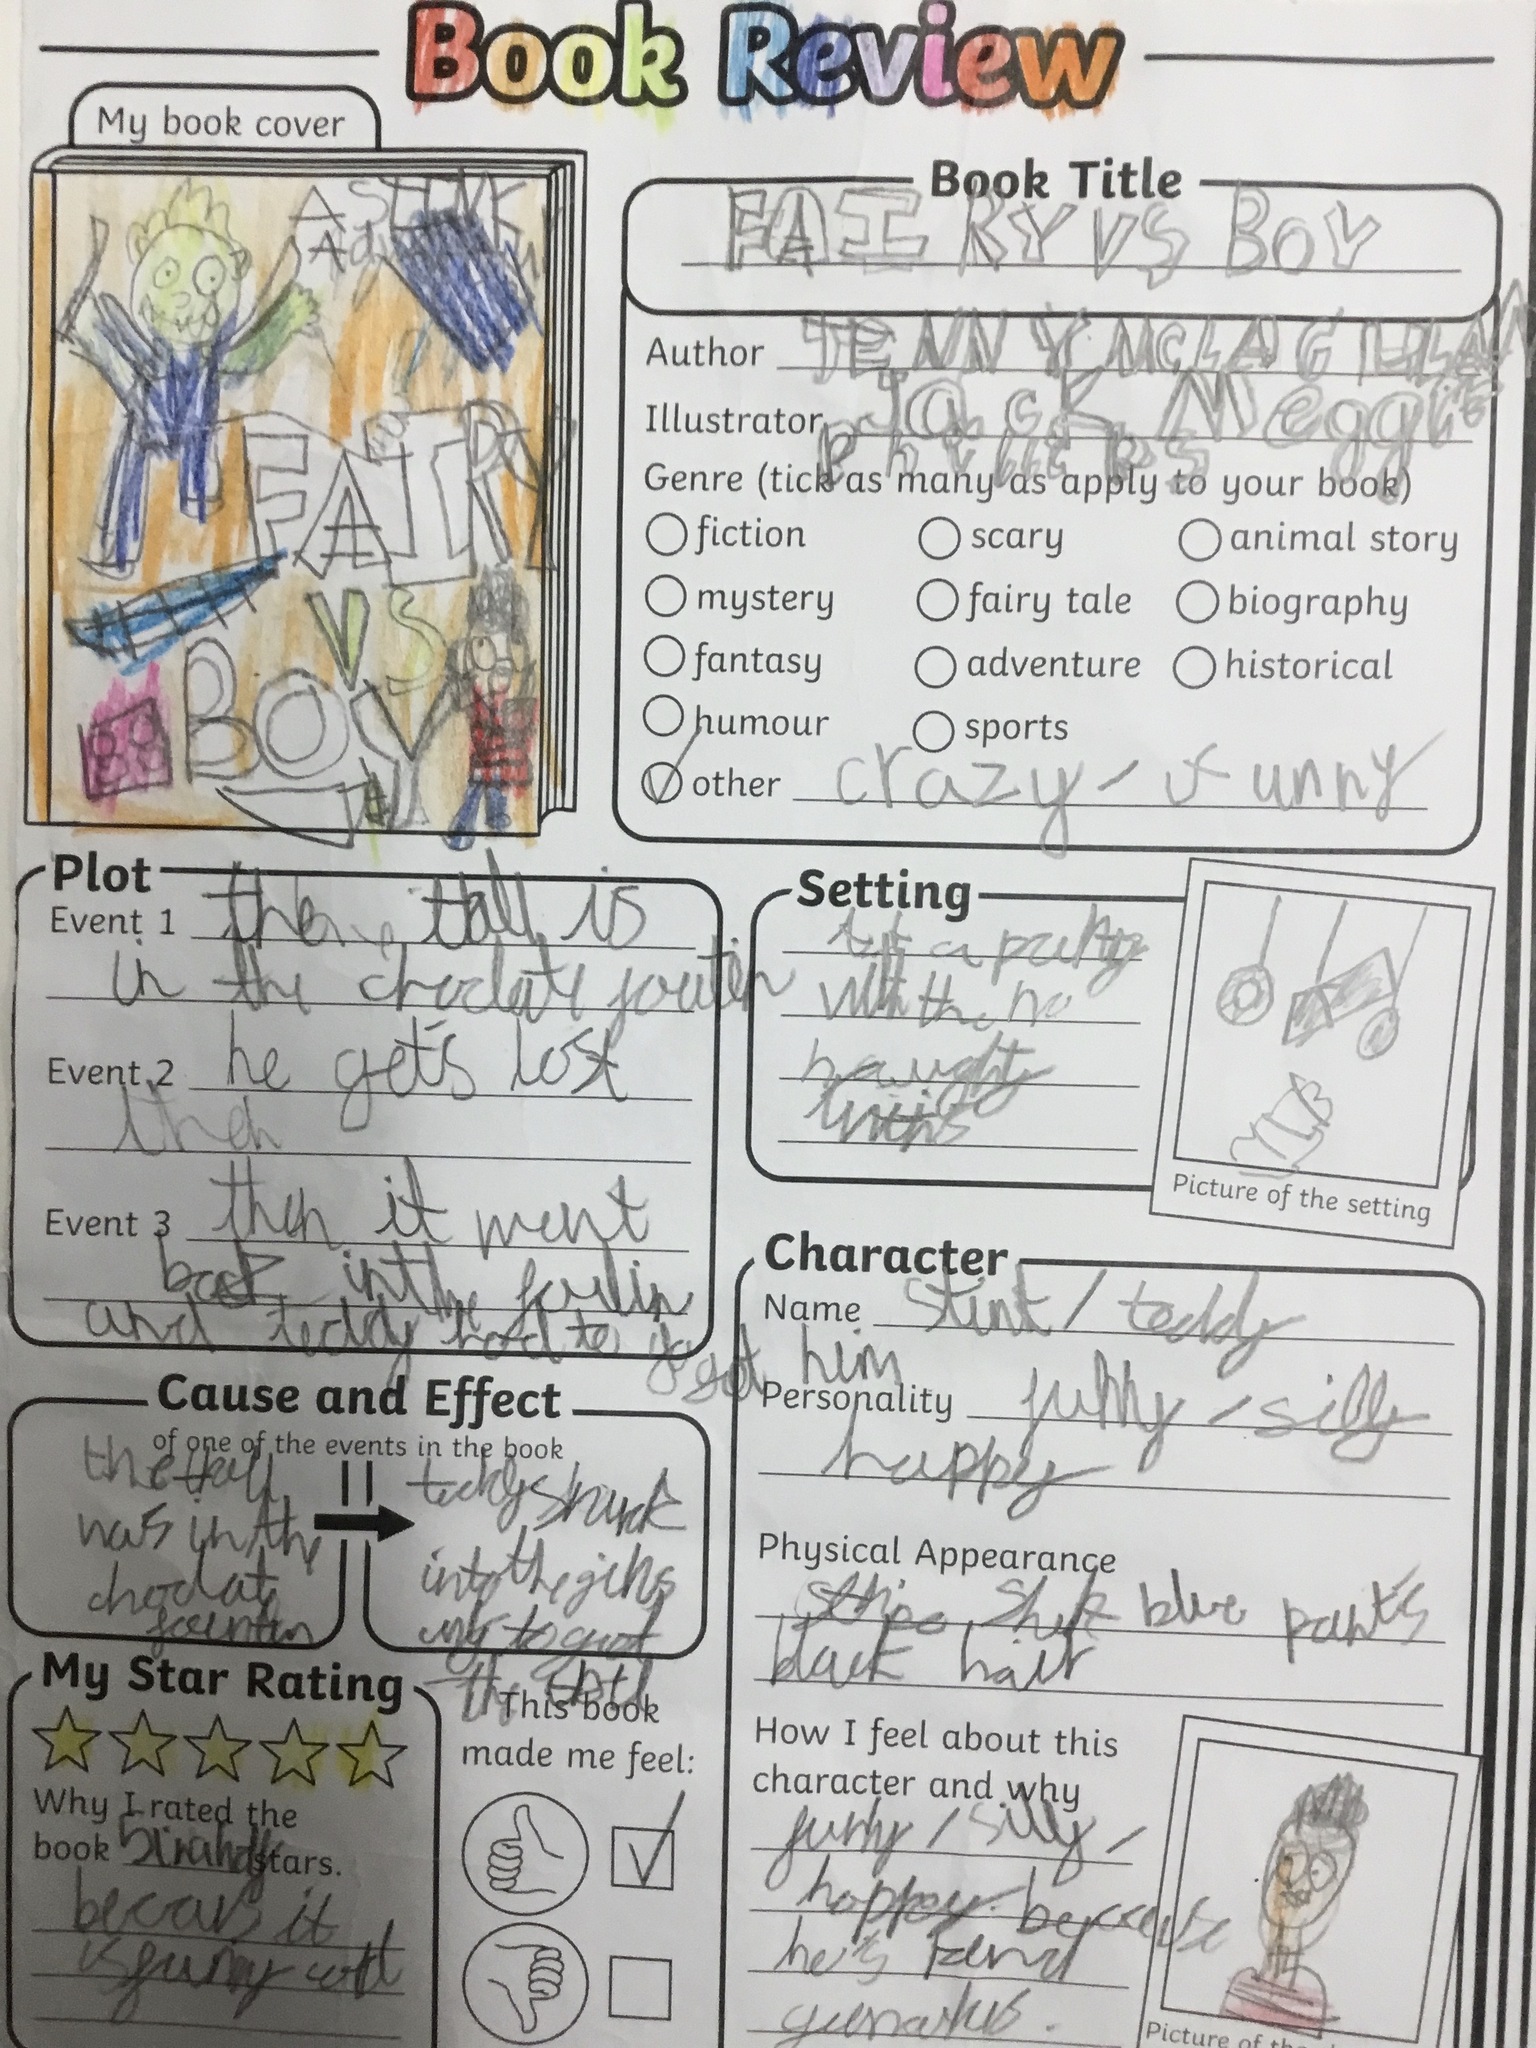 Book Review
My book cover
A STINK
FAIRY
VS
BOY
Book Title
FAIRY VS BOY
Author JENNY McLAGHLAN
Illustrator Jack Meggit
Phillips
Genre (tick as many as apply to your book)
fiction scary animal story
mystery fairy tale biography
fantasy adventure historical
humour sports
other crazy / funny
Plot
Event 1 then tall is
in the choclate
Event 2 he gets lost
then
Event 3 then it went
back in the
and teddy had to go get him
Setting
a party
with the
naughty
Picture of the setting
Character
Name stink / teddy
Personality funny / silly
happy
Physical Appearance
blue pants
black hair
How I feel about this
character and why
funny / silly /
happy because
he's
Picture of the
Cause and Effect
of one of the events in the book
the
was in the
choclat
teddy
into the
the
My Star Rating
Why I rated the
book stars.
becaus it
is funny
This book
made me feel: